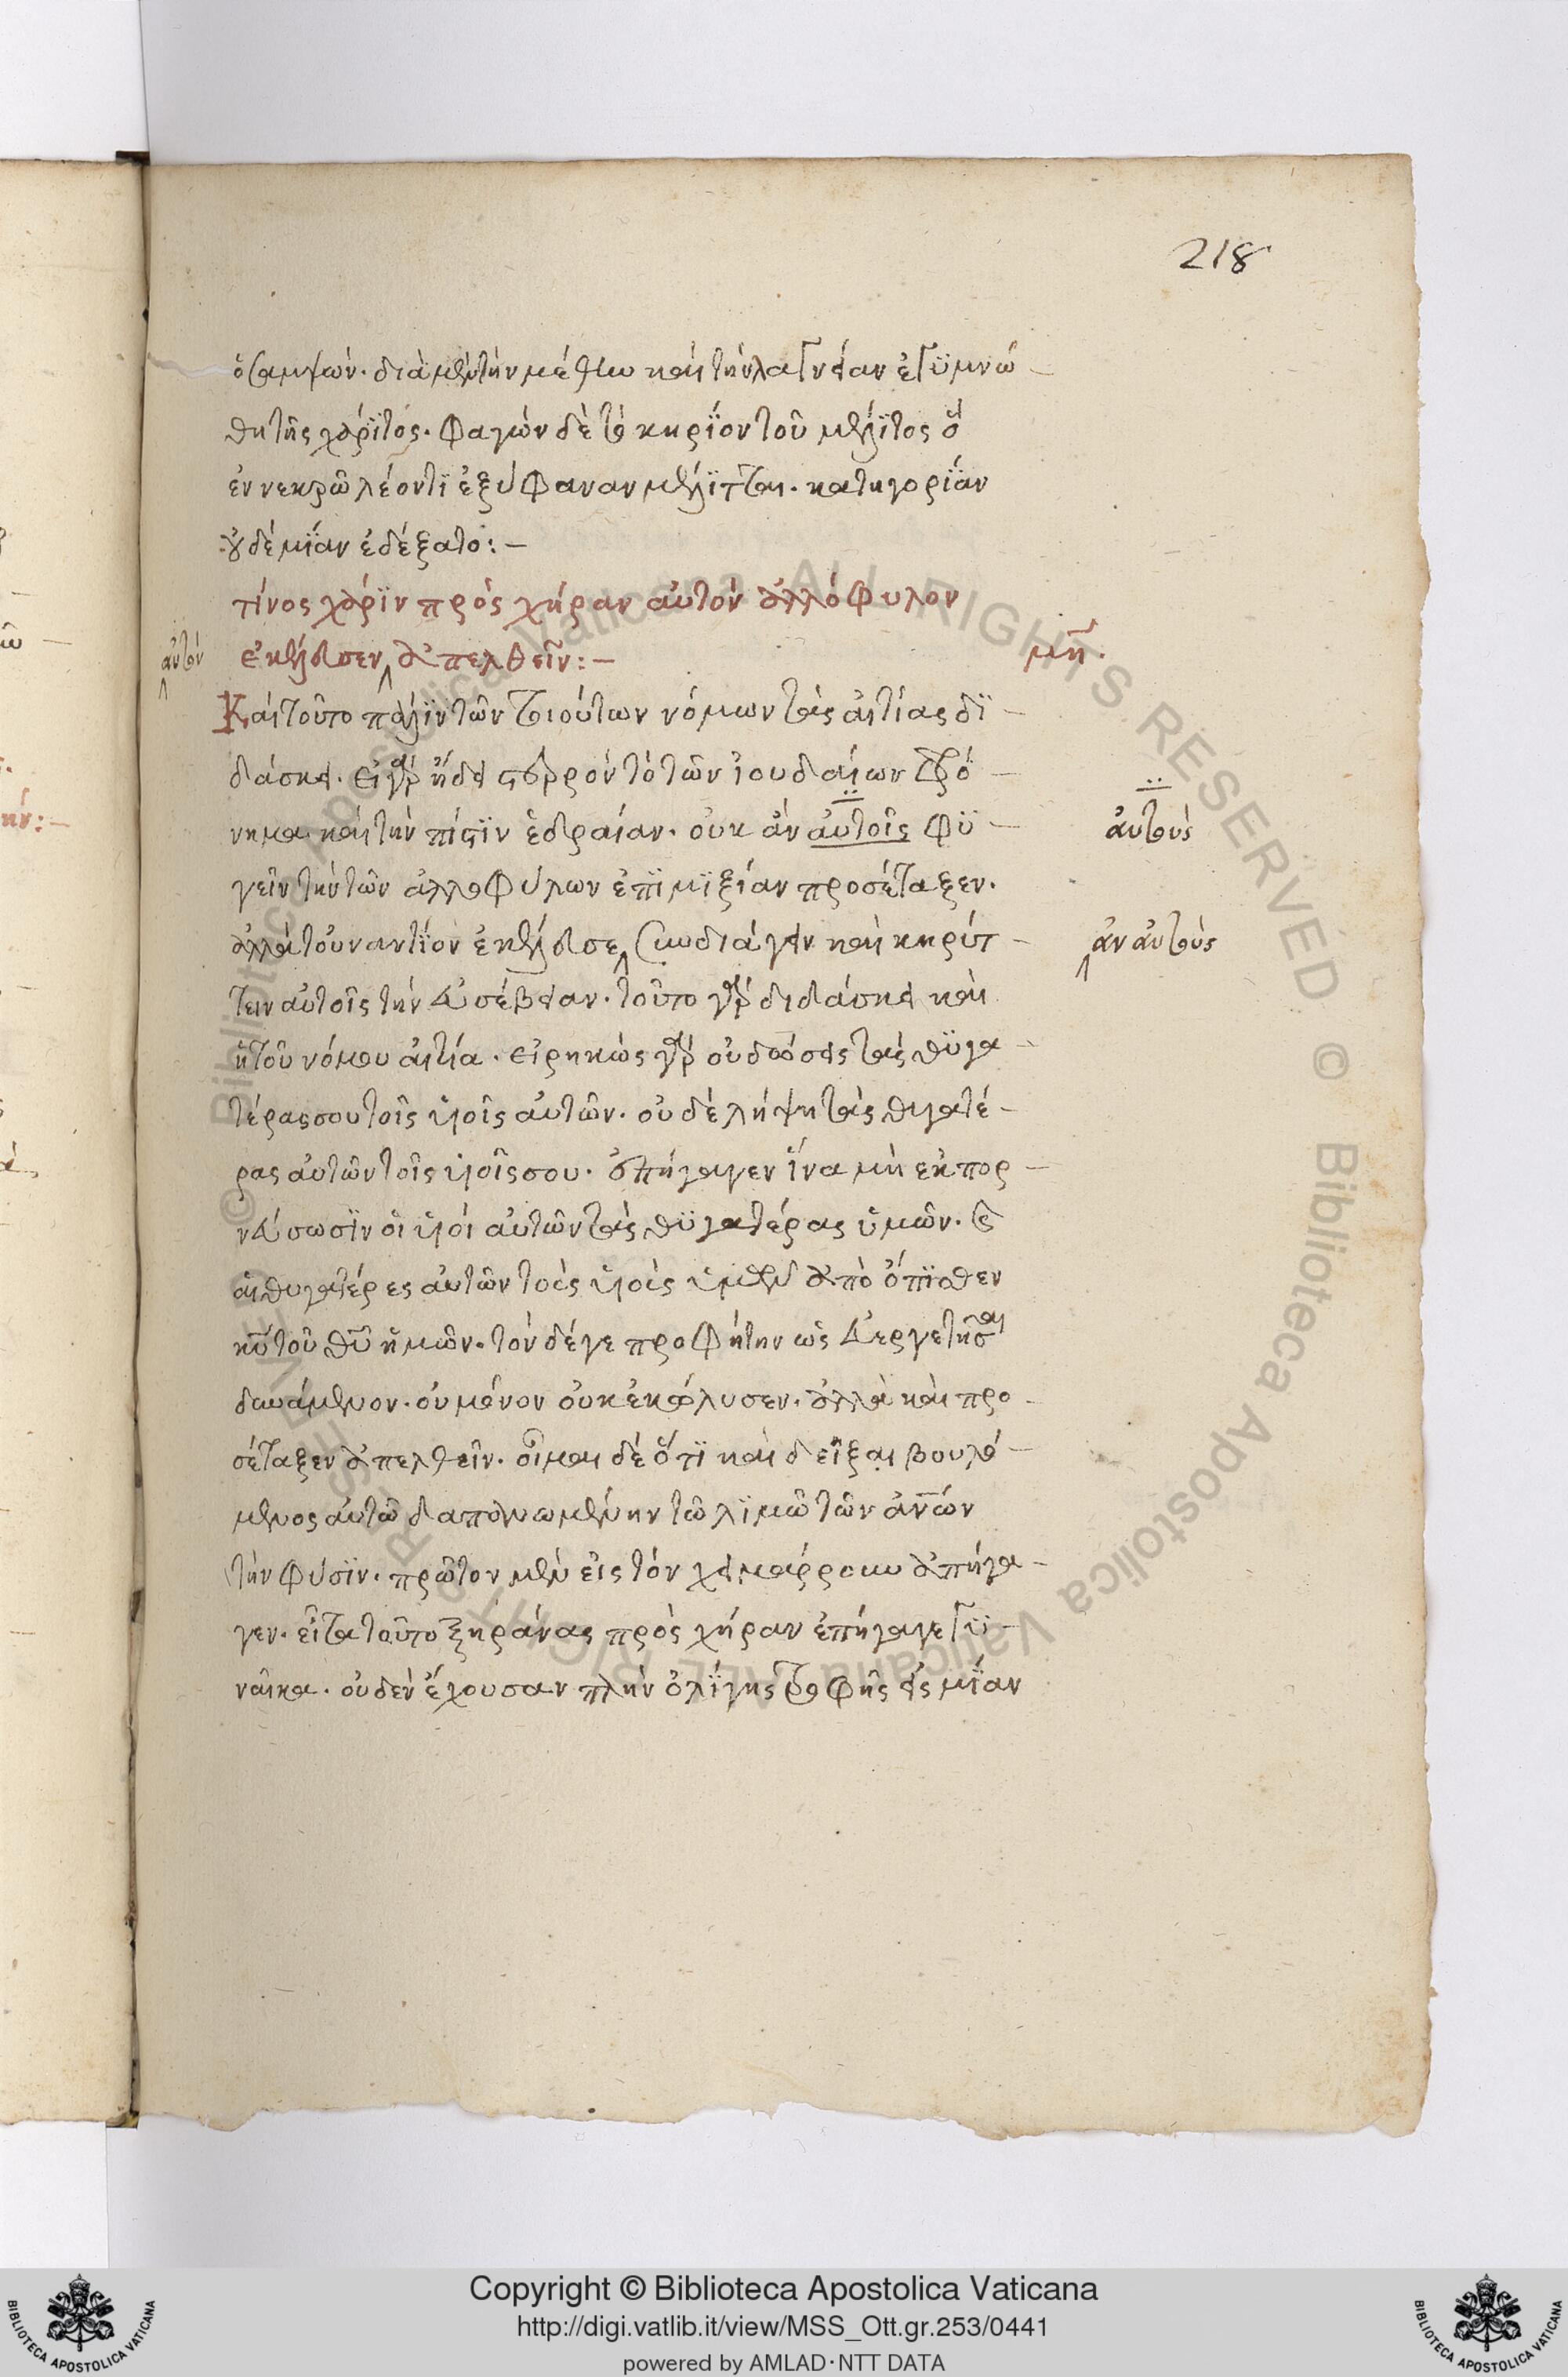 218
ὁ σαμψών. διὰ μὲν τὴν μέθην καὶ τὴν λαγνείαν ἐγϋμνώ
θη τῆς χάρϊτος. φαγὼν δὲ τὸ κηρΐον τοῦ μέλϊτος ὃ
ἐν νεκρῶ λέοντϊ ἐξύφαναν μέλϊτται. κατηγορΐαν
οὐδεμΐαν ἐδέξατο:—
τίνος χάρϊν πρὸς χήραν αὐτὸν ἀλλόφυλον
αὐτὸν ἐκέλευσεν ἀπελθεῖν:— μη.
Καὶ τοῦτο πάλϊν τῶν τοιούτων νόμων τὰς αἰτίας δϊ
δάσκει. εἰ γὰρ ἤδει στερρὸν τὸ τῶν ἰουδαίων φρό
νημα καὶ τὴν πίστϊν ἑδραίαν. οὐκ ἂν αὐτοῖς φϋ αὐτοὺς
γεῖν τὴν τῶν ἀλλοφύλων ἐπϊμϊξίαν προσέταξεν.
ἀλλὰ τοὐναντΐον ἐκέλευσε συνδιάγειν καὶ κηρύτ ἂν αὐτοὺς
τειν αὐτοῖς τὴν εὐσέβειαν. τοῦτο γὰρ διδάσκει καὶ
ἡ τοῦ νόμου αἰτία. εἰρηκὼς γὰρ οὐ δώσεις τὰς θϋγα
τέρας σου τοῖς υἱοῖς αὐτῶν. οὐδὲ λήψη τὰς θυγατέ
ρας αὐτῶν τοῖς υἱοῖς σου. ἐπήγαγεν ἵνα μὴ ἐκπορ
νεύσωσϊν οἱ υἱοὶ αὐτῶν τὰς θϋγατέρας ὑμῶν. καὶ
αἱ θυγατέρες αὐτῶν τοὺς υἱοὺς ὑμῶν ἀπὸ ὄπϊσθεν
κυ τοῦ θυ ἡμῶν. τὸν δέ γε προφήτην ὡς εὐεργετῆσαι
δυνάμενον. οὐ μόνον οὐκ ἐκώλυσεν. ἀλλὰ καὶ προ
σέταξεν ἀπελθεῖν. οἶμαι δὲ ὅτϊ καὶ δεῖξαι βουλό
μενος αὐτῶ δαπανωμένην τῶ λϊμῶ τῶν ἀνων
τὴν φύσϊν. πρῶτον μὲν εἰς τὸν χειμάρρουν ἀπήγα
γεν. εἶτα τοῦτο ξηράνας πρὸς χήραν ἐπήγαγε γϋ
ναῖκα. οὐδὲν ἔχουσαν πλὴν ὀλΐγης τροφῆς εἰς μΐαν
Copyright © Biblioteca Apostolica Vaticana
http://digi.vatlib.it/view/MSS_Ott.gr.253/0441
powered by AMLAD·NTT DATA